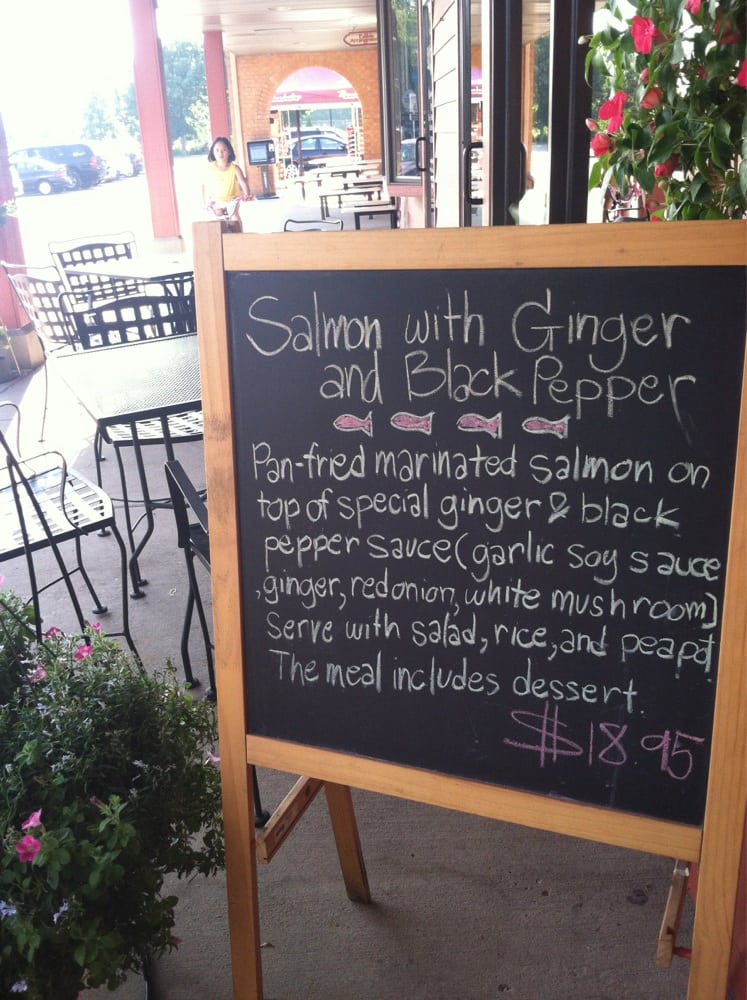 Salmon with Ginger
and Black Pepper
Pan-fried marinated salmon on
top of special ginger & black
pepper sauce (garlic soy sauce
,ginger, red onion, white mushroom)
Serve with salad, rice, and peapod
The meal includes dessert.
$18.95